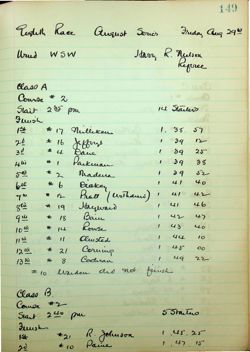 149
Eighth Race August Series Friday Aug 29th
Wind WSW Harry R. Nelson
Referee
Class A
Course # 2
Start 2 35 pm 14 Starters
Finish
1st # 17 Milliken 1 38 57
2d # 16 Jeffrys 1 39 12
3d # 4 Lane 1 39 25
4th # 1 Parkman 1 39 38
5th # 2 1 39 52
6th # 6 1 41 40
7th # 9 Pratt 1 41 42
8th # 19 Hayward 1 41 46
9th # 18 Bain 1 42 47
10th # 14 Rowse 1 43 40
11th # 11 Olmsted 1 44 10
12th # 21 Corning 1 45 00
13th # 8 Cochran 1 49 22
# 10 did not finish
Class B
Course # 2
Start 2 40 pm 5 Starters
Finish
1st # 21 R. Johnson 1 45 25
2d # 10 Paine 1 47 15